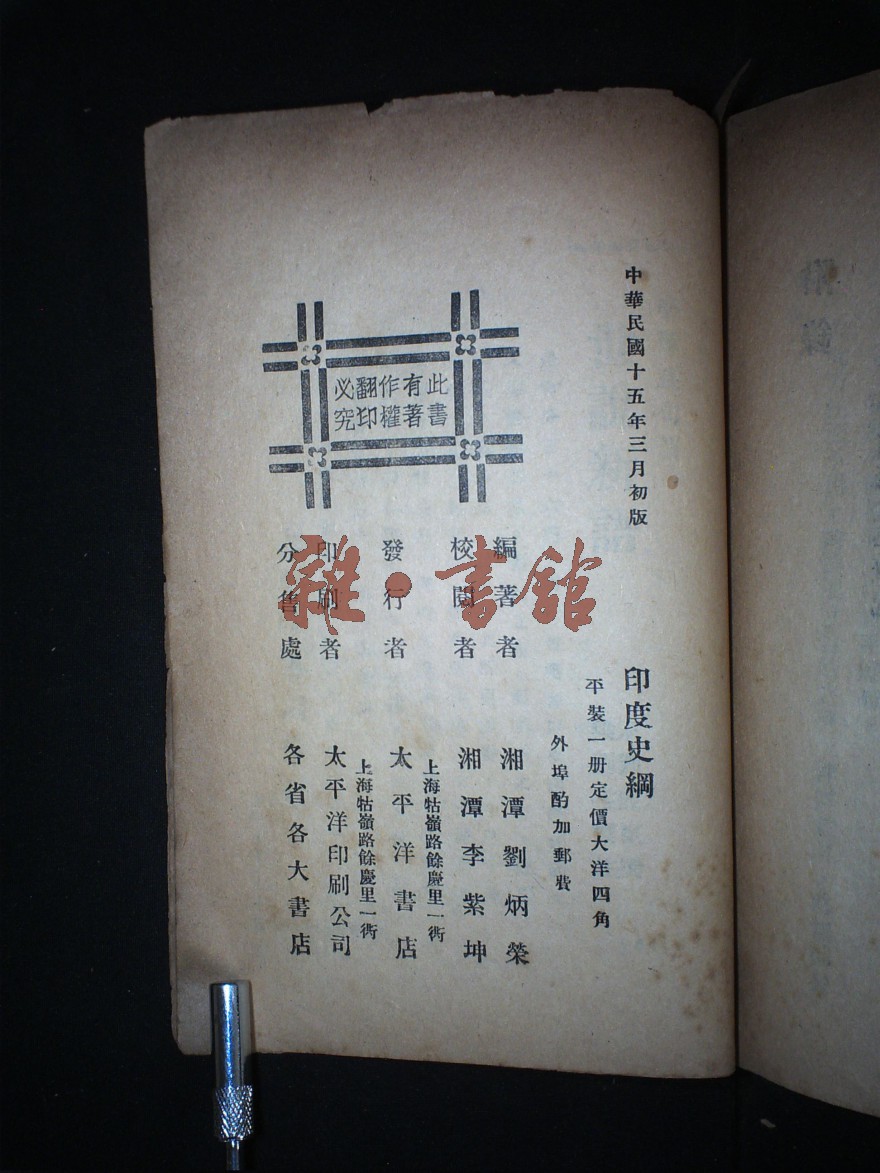 中華民國十五年三月初版
印度史綱
平裝一册定價大洋四角
外埠酌加郵費
編著者 湘潭劉炳榮
校閱者 湘潭李紫坤
上海牯嶺路餘慶里一衖
發行者 太平洋書店
上海牯嶺路餘慶里一衖
印刷者 太平洋印刷公司
分售處 各省各大書店
此書
有著
作權
翻印
必究
雜·書館
附錄